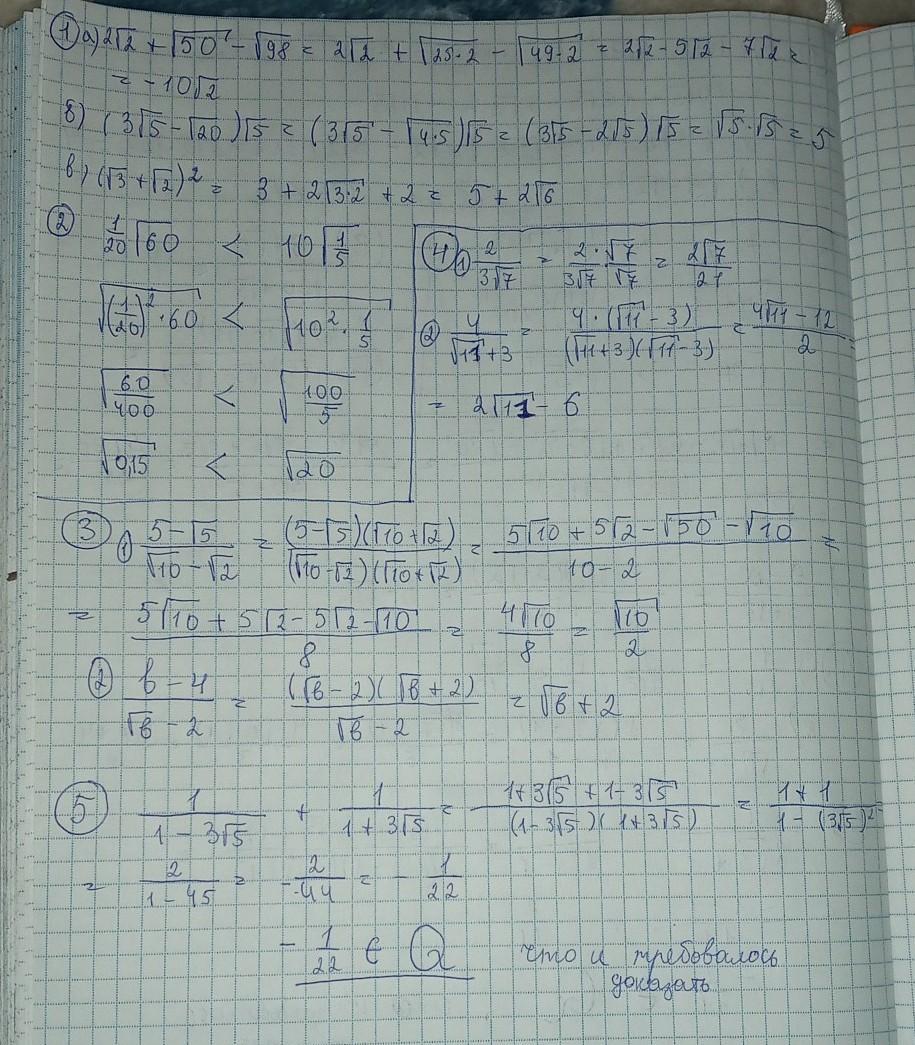 ① а) 2√2 + √50 - √98 = 2√2 + √(25·2) - √(49·2) = 2√2 - 5√2 - 7√2 =
= -10√2
б) (3√5 - √20)√5 = (3√5 - √(4·5))√5 = (3√5 - 2√5)√5 = √5·√5 = 5
в) (√3 + √2)² = 3 + 2√(3·2) + 2 = 5 + 2√6
② 1/20 √60 < 10√(1/5)
√((1/20)²·60) < √(10²·1/5)
√(60/400) < √(100/5)
√0,15 < √20
④ ① 2/(3√7) = (2·√7)/(3√7 √7) = 2√7/21
② 4/(√11+3) = (4·(√11-3))/((√11+3)(√11-3)) = (4√11-12)/2 =
= 2√11 - 6
③ ① (5-√5)/(√10-√2) = ((5-√5)(√10+√2))/((√10-√2)(√10+√2)) = (5√10 + 5√2 - √50 - √10)/(10-2) =
= (5√10 + 5√2 - 5√2 - √10)/8 = 4√10/8 = √10/2
② (в-4)/(√в-2) = ((√в-2)(√в+2))/(√в-2) = √в + 2
⑤ 1/(1-3√5) + 1/(1+3√5) = (1+3√5+1-3√5)/((1-3√5)(1+3√5)) = (1+1)/(1-(3√5)²) =
= 2/(1-45) = 2/-44 = - 1/22
- 1/22 ∈ Q что и требовалось
доказать